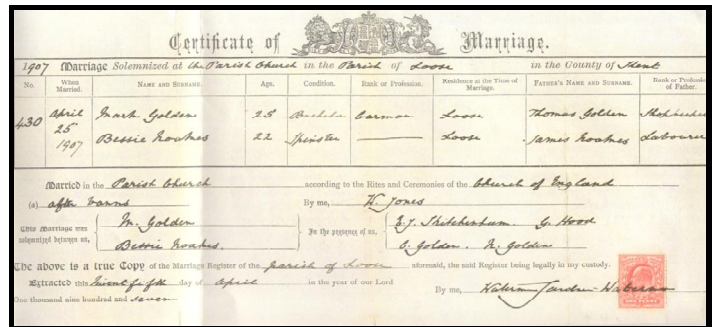 Certificate of Marriage.
1907 Marriage Solemnized at the Parish Church in the Parish of Loose in the County of Kent
No. When Married. Name and Surname. Age. Condition. Rank or Profession. Residence at the Time of Marriage. Father's Name and Surname. Rank or Profession of Father.
430 April 25 1907 Mark Golden 25 Bachelor Carman Loose Thomas Golden Shopkeeper
Bessie Noakes 22 Spinster Loose James Noakes Labourer
Married in the Parish Church according to the Rites and Ceremonies of the Church of England
(a) after banns By me, W. Jones
This Marriage was solemnized between us, M. Golden Bessie Noakes. In the presence of us, G. Hood
Golden. Golden
The above is a true Copy of the Marriage Register of the parish of Loose aforesaid, the said Register being legally in my custody.
Extracted this twenty fifth day of April in the year of our Lord
One thousand nine hundred and seven By me,